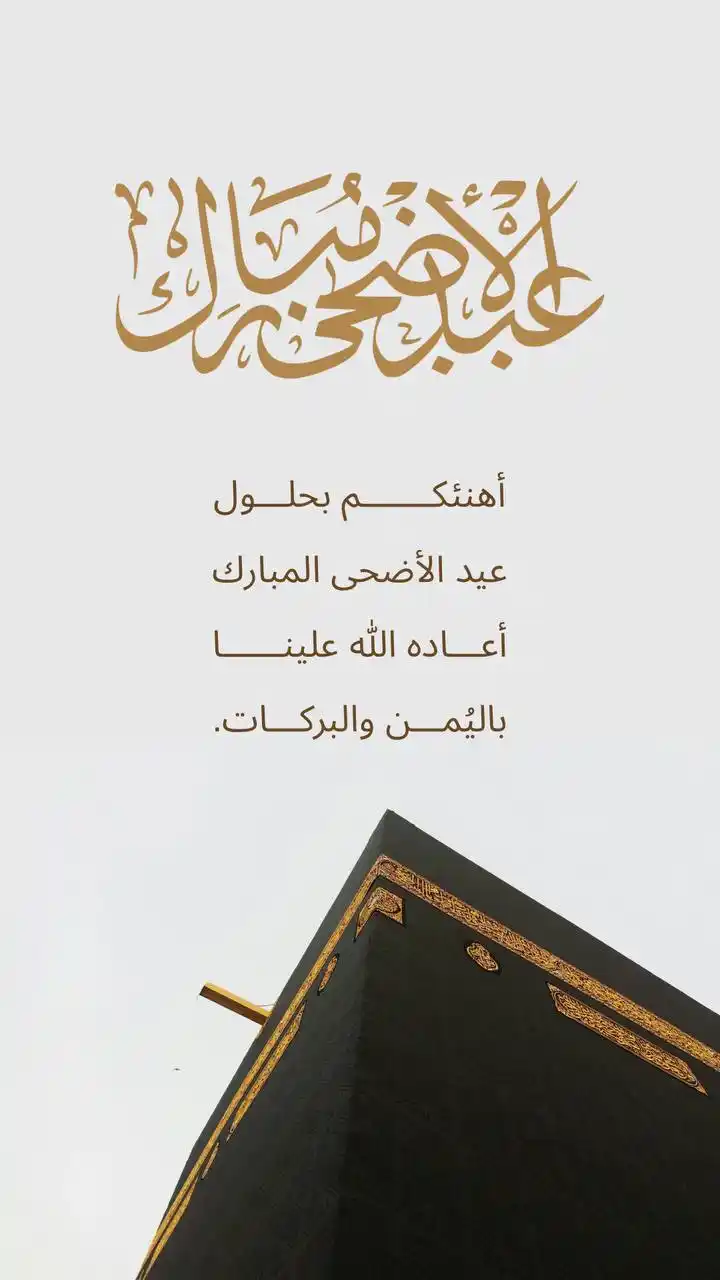 عيد الأضحى مبارك
أهنئكـــــــم بحلـــول
عيد الأضحى المبارك
أعـــاده الله علينـــــا
باليُمـــن والبركـــات.